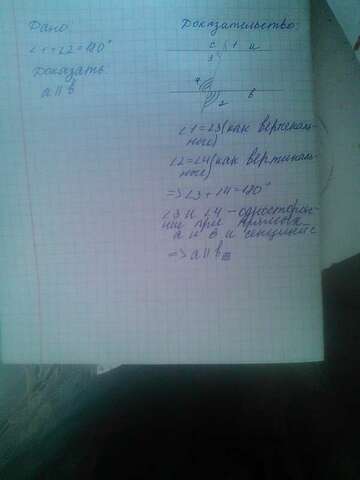 Дано:
∠1+∠2=180°
Доказать
a || b
Доказательство:
c 1 a
3
4
2 b
∠1=∠3 (как вертикаль-
ные)
∠2=∠4 (как вертикаль-
ные)
=> ∠3+∠4=180°
∠3 и ∠4 – односторон-
ние при прямых
a и b и секущей c
=> a || b